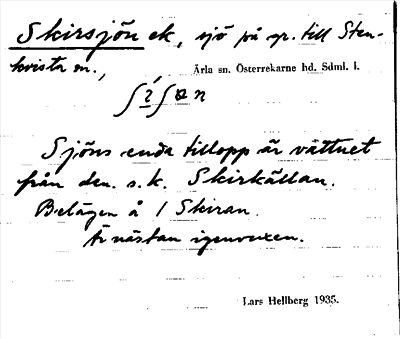 Skirsjön ek, sjö på gr. till Sten-
kvista sn.,
Ärla sn. Österrekarne hd. Sdml. l.
Sjöns enda tillopp är vattnet
från den s.k. Skirkällan.
Belägen å / Skiran.
Är nästan igenvuxen.
Lars Hellberg 1935.